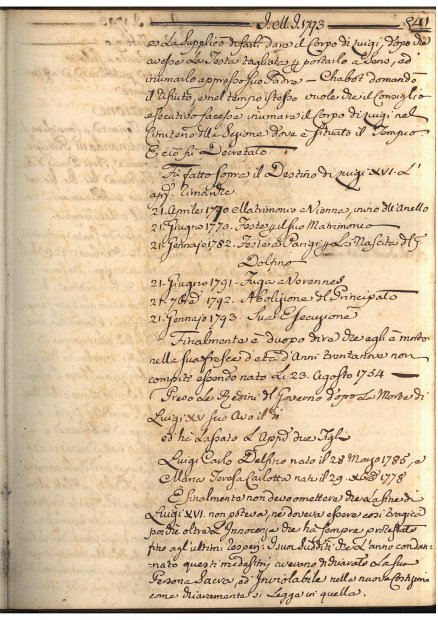 d. M. d. 1793
e La Supplicò di farli dare il Corpo di Luigi, dopo che
avesse la Testa tagliata p portarlo a Sens, ed
inumarlo appresso suo Padre — Chabot domandò
il rifiuto, e nel tempo istesso vuole che il Consiglio
esecutivo facesse inumare il Corpo di Luigi nel
della Sezione dov'è situato il Tempio
E ciò fù Decretato
Fù fatto sopra il Destino di Luigi XVI. L'
21. Aprile 1770 Matrimonio a Vienna, invio dell'Anello
21. Giugno 1770. Feste p il suo Matrimonio
21. Gennajo 1782. Feste di Parigi p La Nascita del
Delfino
21. Giugno 1791. Fuga a Varennes
21. 7bre 1792. Abolizione del Principato
21. Gennajo 1793. Sua Essecuzione
Finalmente è duopo dire che egli è morto
nella sua fresca età d'Anni trentanove non
compiti essendo nato Li 23. Agosto 1754
Prese Le Redini del Governo dopo La Morte di
Luigi XV suo Avo il
ed hà Lassato due Figli
Luigi Carlo Delfino nato il 28 Marzo 1785, e
Maria Teresa Carlotta nata il 29. Xbre 1778
E finalmente non devo omettere che La fine di
Luigi XVI. non poteva, ne doveva essere così tragica
poiche oltre L'Innocenza che hà sempre protestato
fino agl'ultimi i suoi Sudditi che L'anno condan-
nato questi medesimi avevano dichiarato La sua
Persona Sacra, ed Inviolabile nella nuova Costituzione
come chiaramente si Legge in quella.